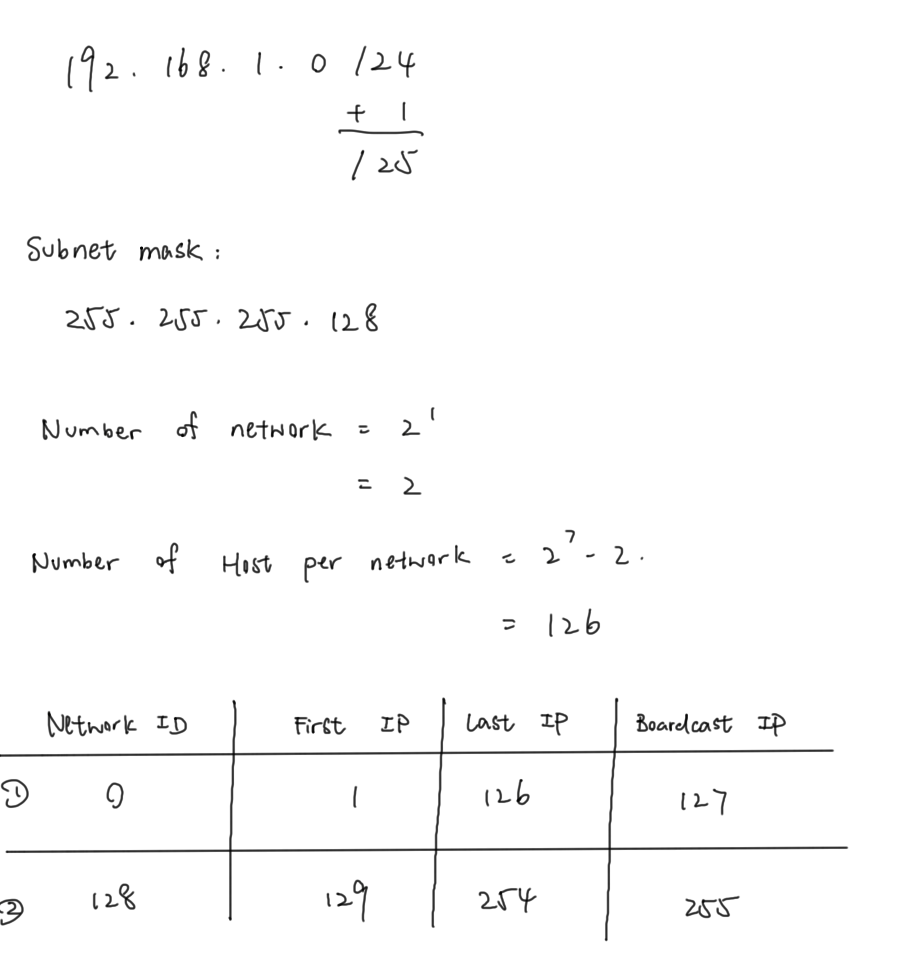 192. 168. 1. 0 /24
+ 1
/25
Subnet mask :
255. 255. 255. 128
Number of network = 2¹
= 2
Number of Host per network = 2⁷ - 2.
= 126
Network ID First IP Last IP Boardcast IP
① 0 1 126 127
② 128 129 254 255